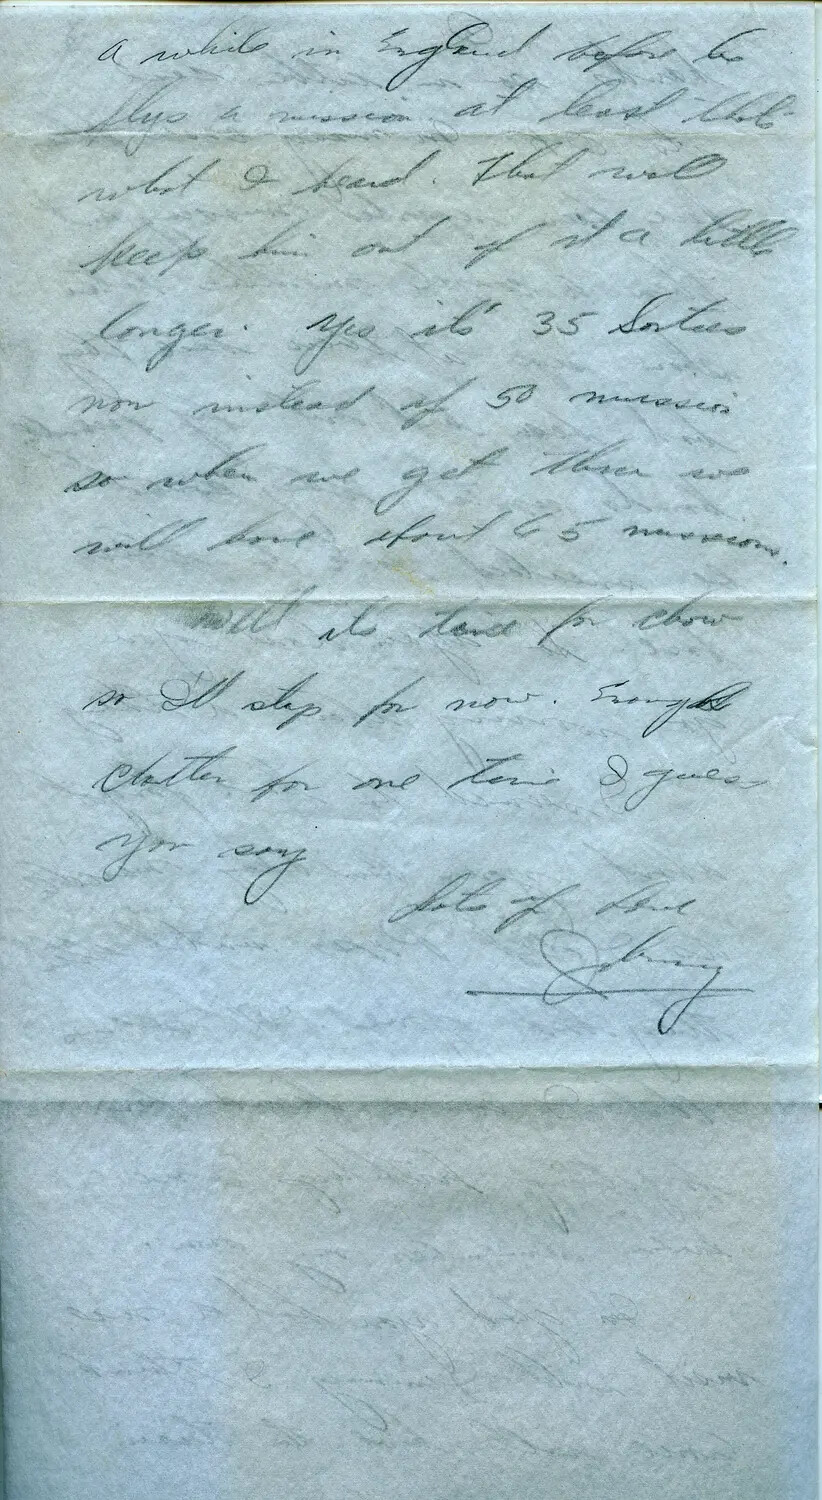 a while in England before he
flys a mission at least thats
what I heard. That will
keep him out of it a little
longer. Yes it's 35 Sorties
now instead of 50 mission
so when we get thru we
will have about 65 missions.
Well its time for chow
so I'll stop for now. Enough
chatter for one time I guess
you say
Lots of Love
Johnny